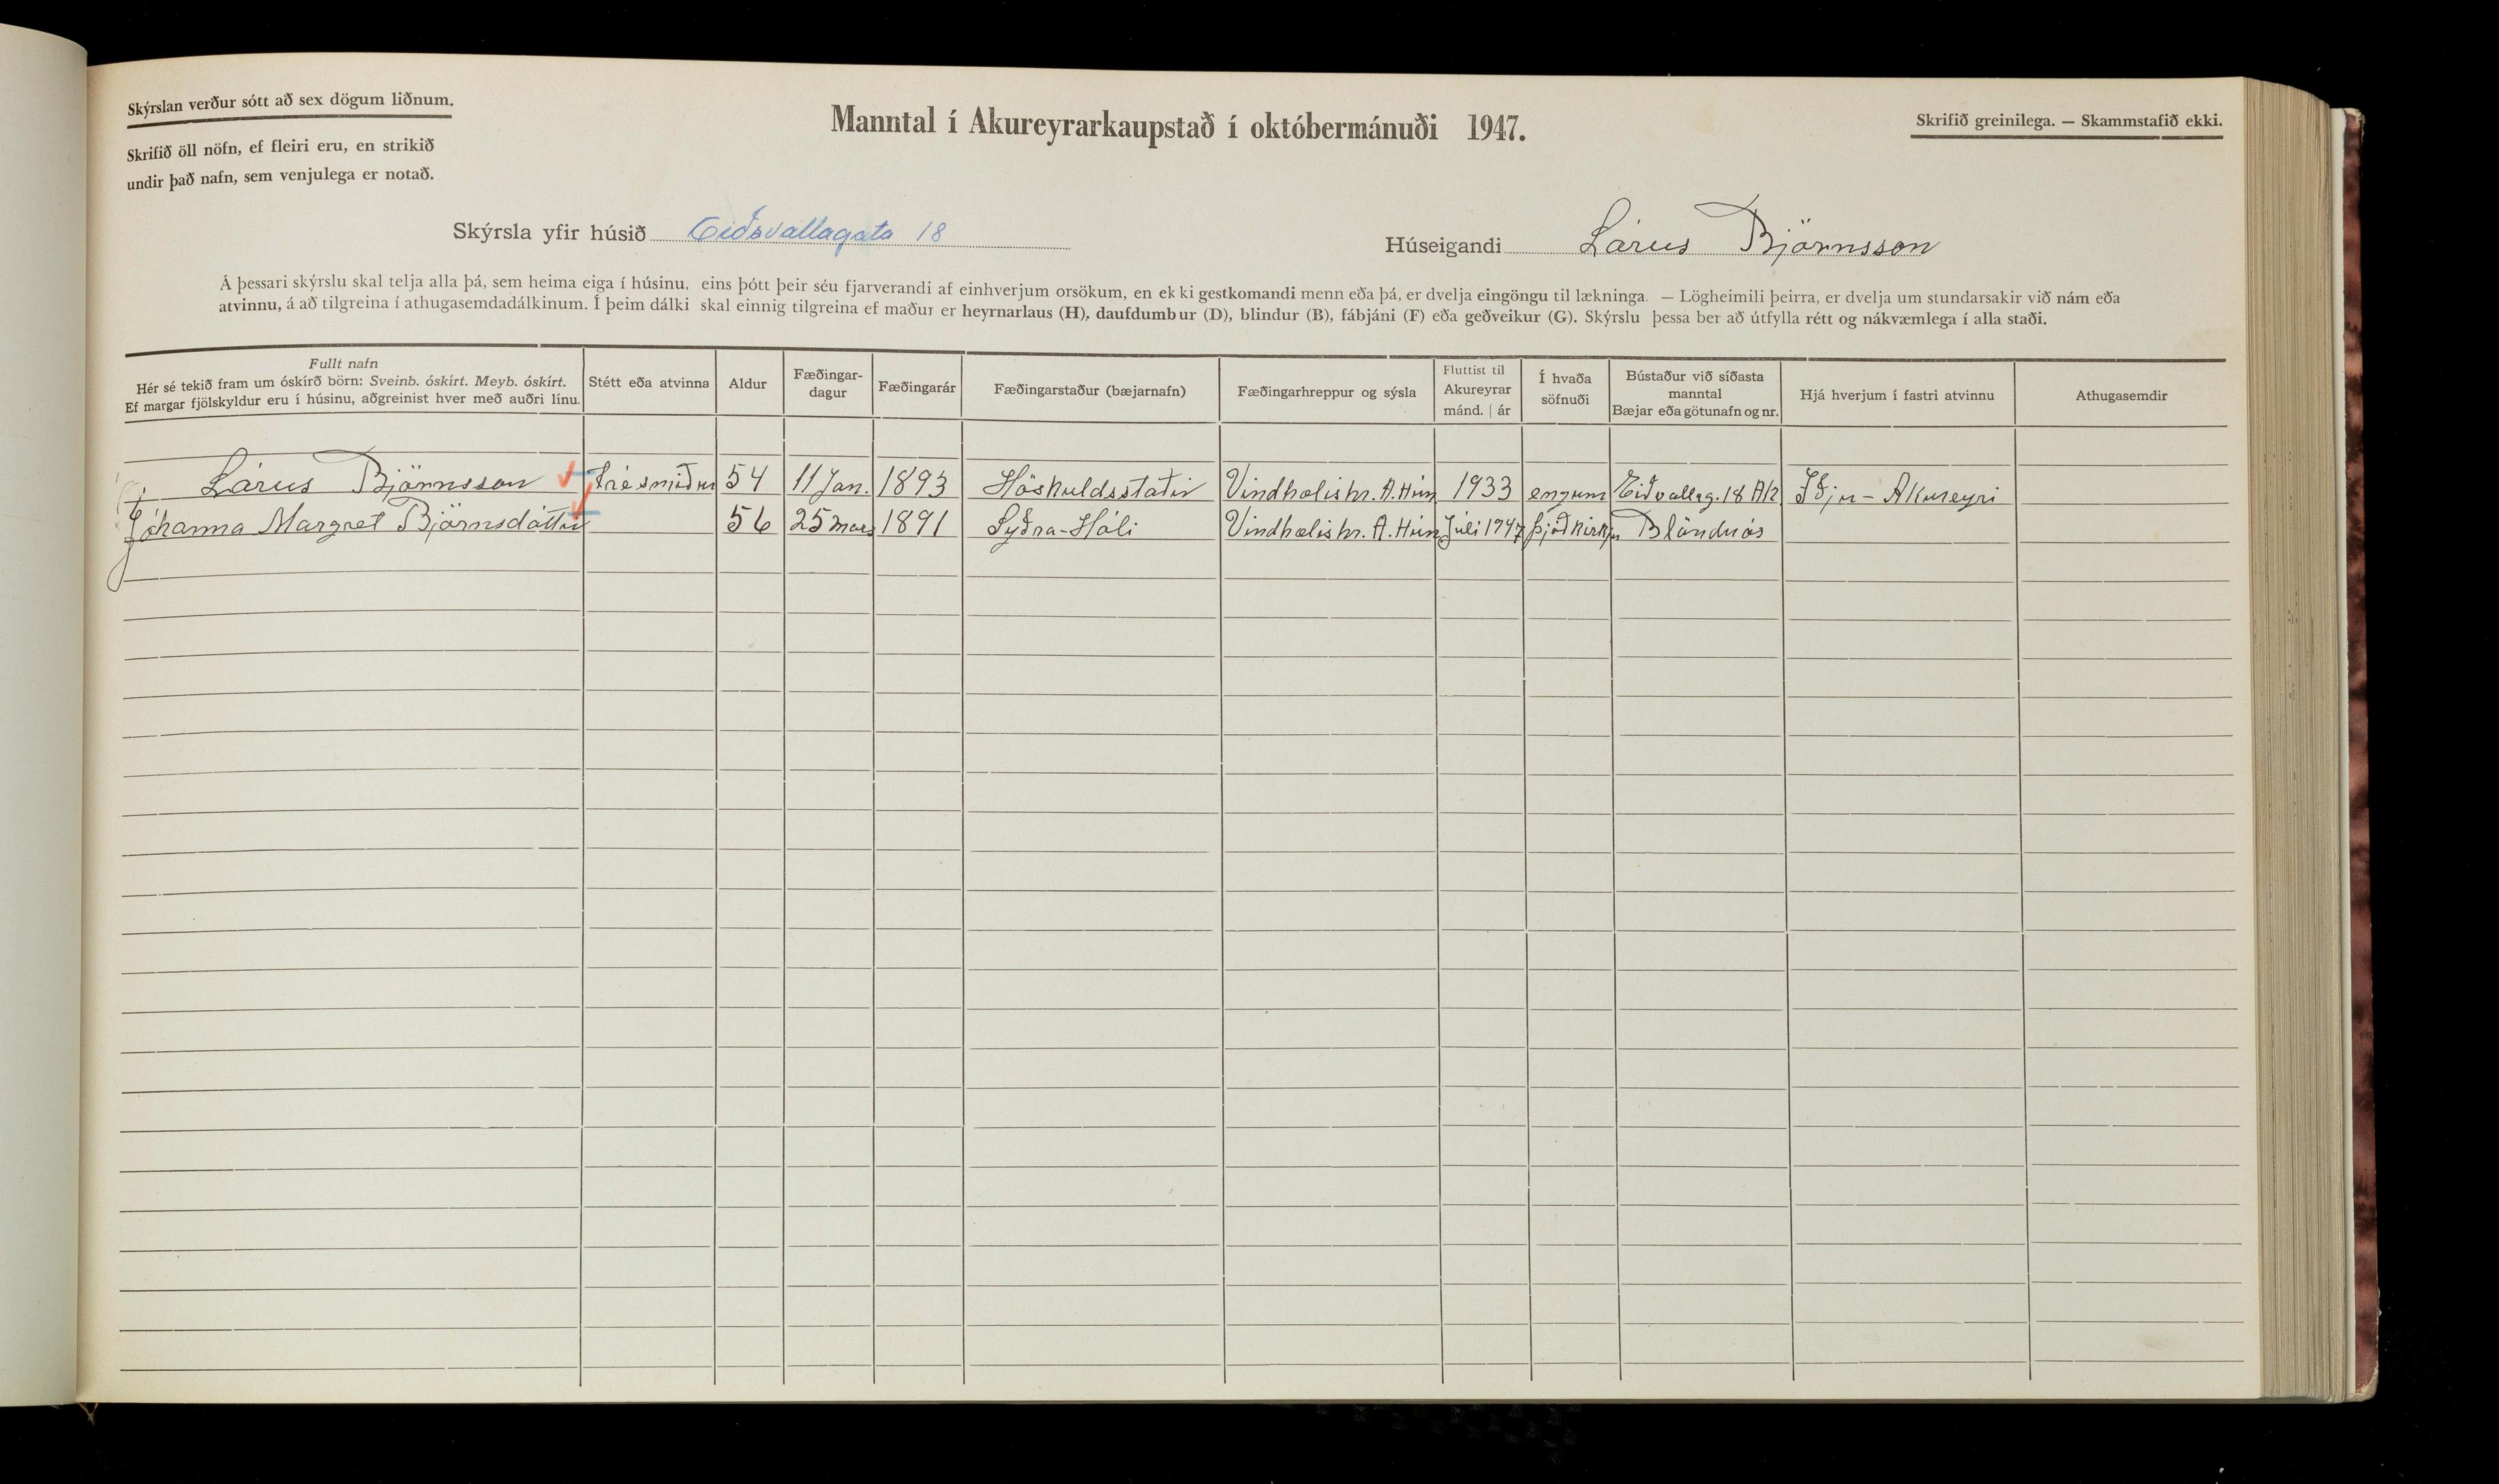 Skýrslan verður sótt að sex dögum liðnum.
Skrifið öll nöfn, ef fleiri eru, en strikið
undir það nafn, sem venjulega er notað.
Manntal í Akureyrarkaupstað í októbermánuði 1947.
Skrifið greinilega. — Skammstafið ekki.
Skýrsla yfir húsið Eiðsvallagata 18
Húseigandi Lárus Björnsson
Á þessari skýrslu skal telja alla þá, sem heima eiga í húsinu, eins þótt þeir séu fjarverandi af einhverjum orsökum, en ekki gestkomandi menn eða þá, er dvelja eingöngu til lækninga. — Lögheimili þeirra, er dvelja um stundarsakir við nám eða
atvinnu, á að tilgreina í athugasemdadálkinum. Í þeim dálki skal einnig tilgreina ef maður er heyrnarlaus (H), daufdumbur (D), blindur (B), fábjáni (F) eða geðveikur (G). Skýrslu þessa ber að útfylla rétt og nákvæmlega í alla staði.
Fullt nafn
Hér sé tekið fram um óskírð börn: Sveinb. óskírt. Meyb. óskírt.
Ef margar fjölskyldur eru í húsinu, aðgreinist hver með auðri línu.
Stétt eða atvinna
Aldur
Fæðingar-
dagur
Fæðingarár
Fæðingarstaður (bæjarnafn)
Fæðingarhreppur og sýsla
Fluttist til
Akureyrar
mánd. | ár
Í hvaða
söfnuði
Bústaður við síðasta
manntal
Bæjar eða götunafn og nr.
Hjá hverjum í fastri atvinnu
Athugasemdir
Lárus Björnsson trésmiður 54 11 Jan. 1893 Höskuldsstaðir Vindhælishr. A. Hún 1933 engum Eiðvallag. 18 Ak Iðju - Akureyri
Jóhanna Margret Björnsdóttir 56 25 mars 1891 Syðra-Hóli Vindhælishr. A. Hún Júlí 1947 Þjóðkirkju Blönduós